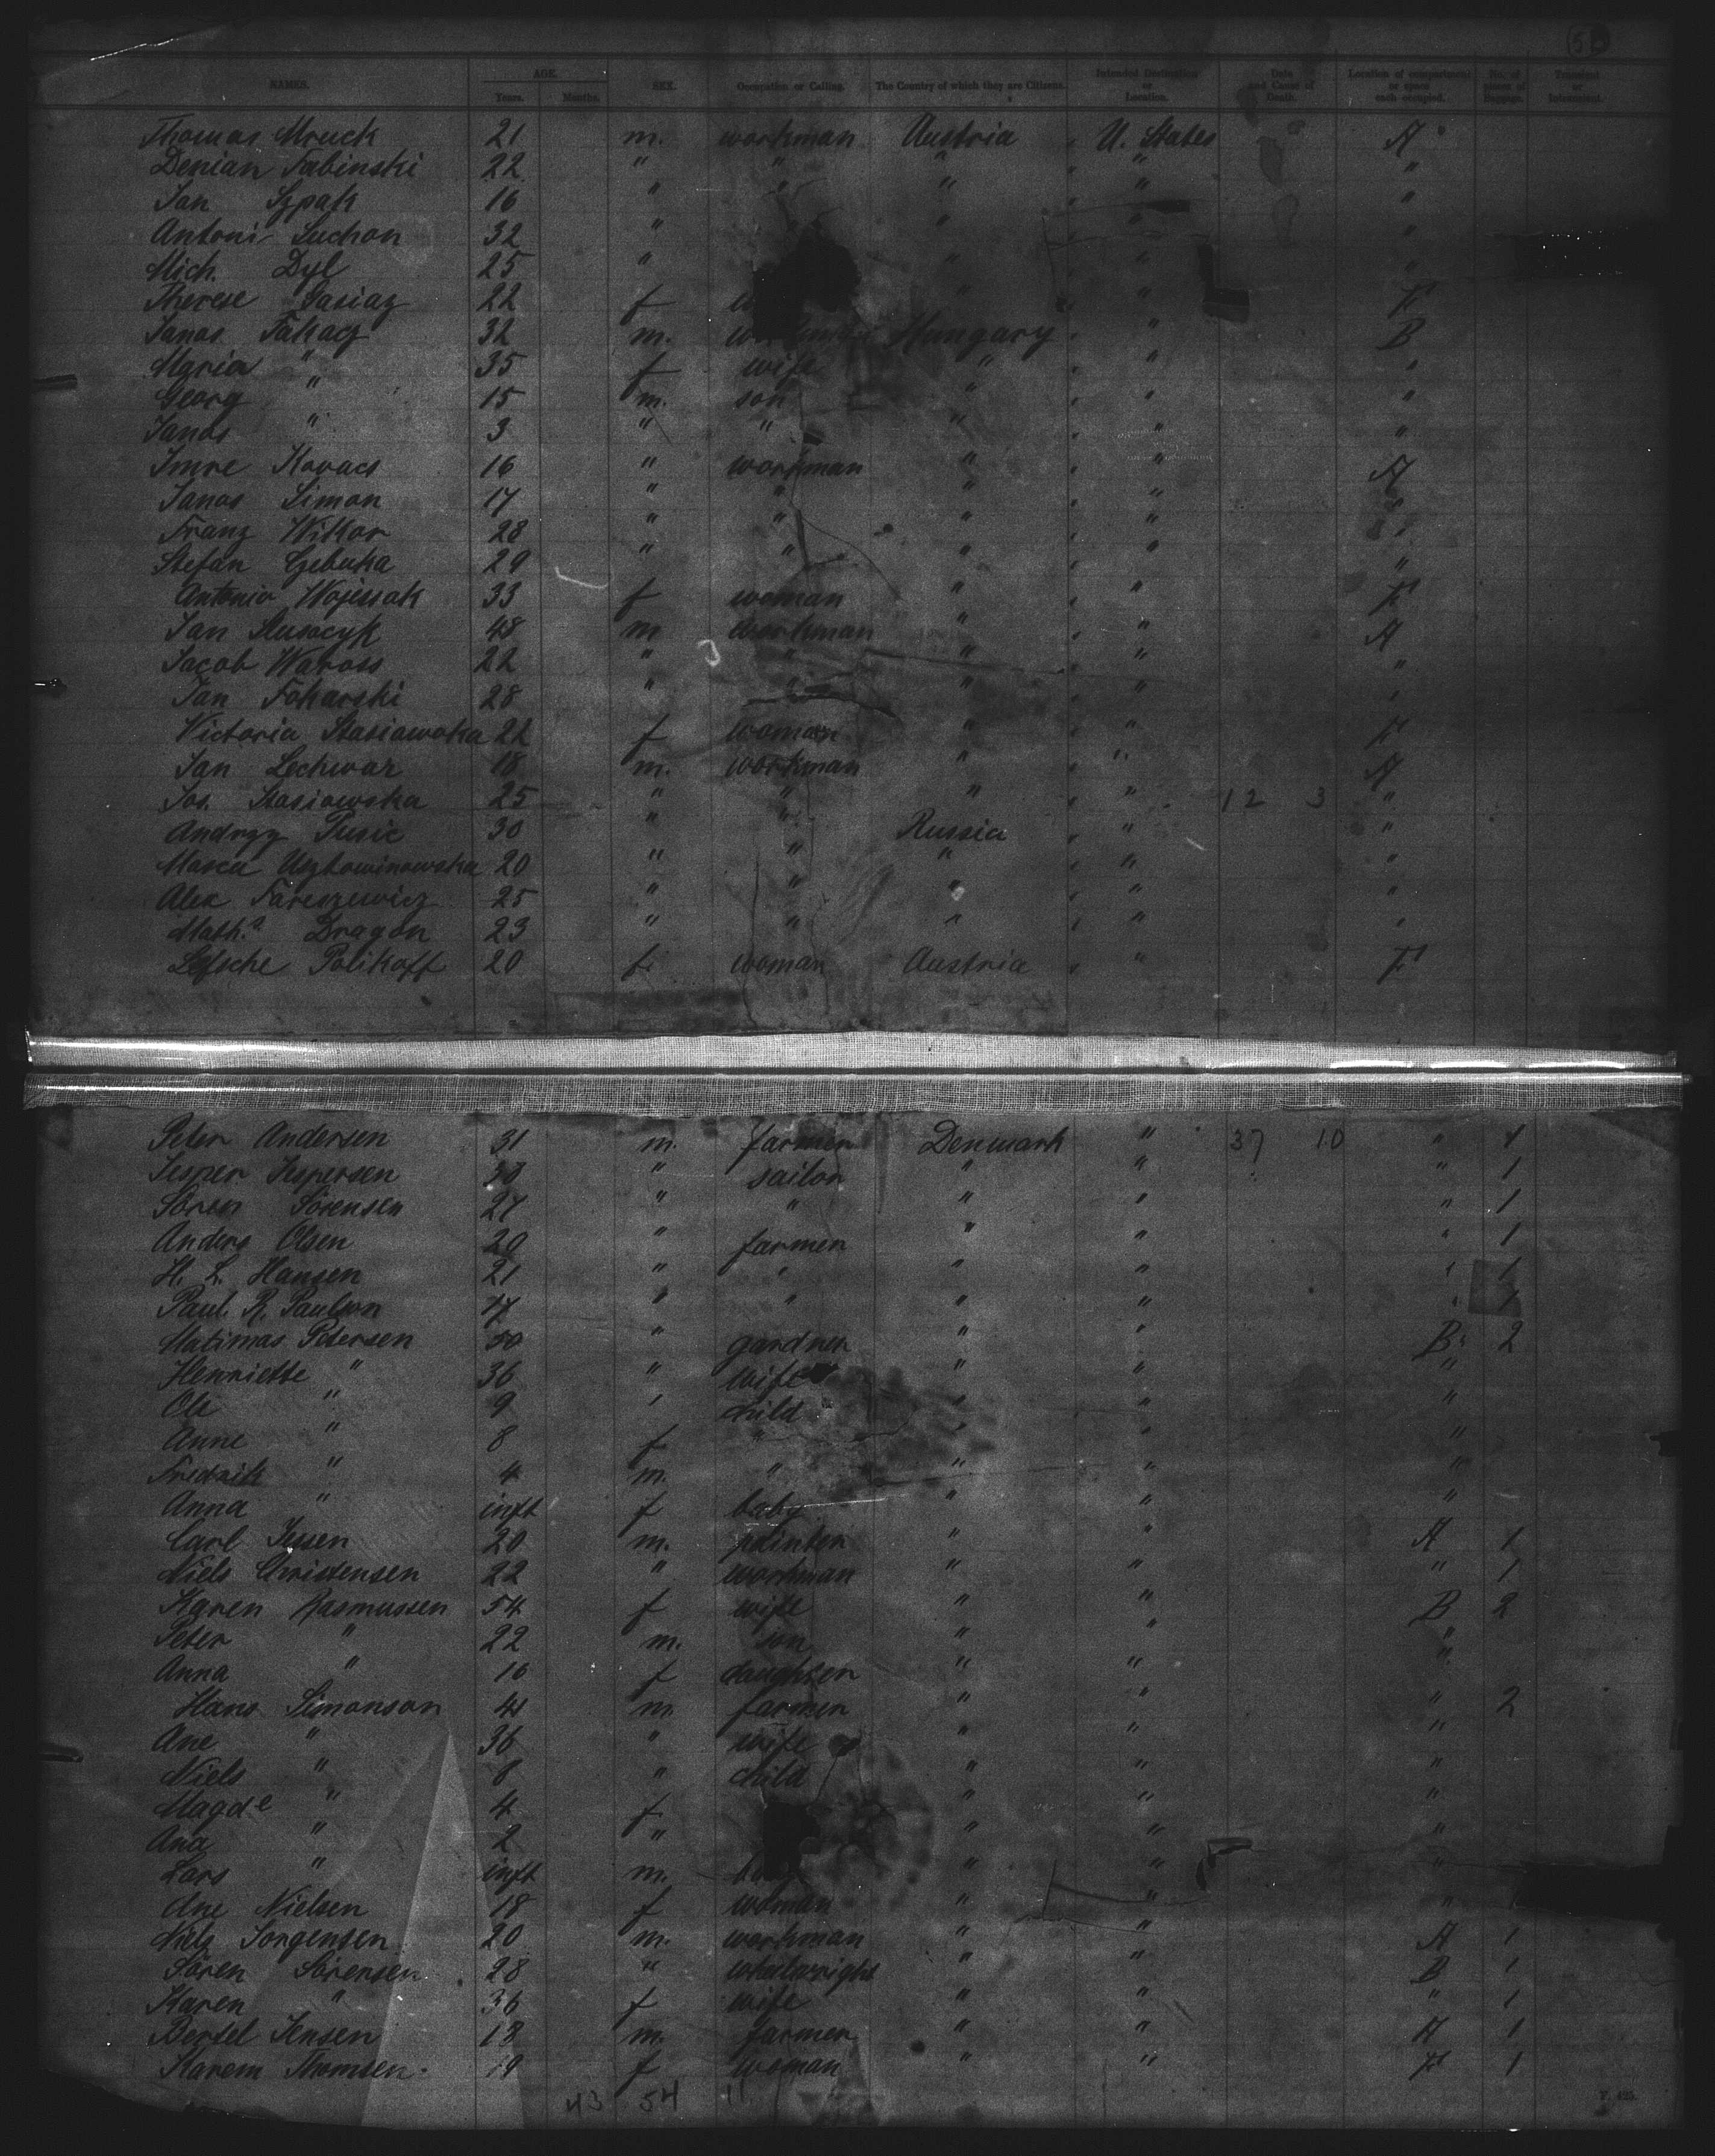 NAMES. AGE. Years. Months. SEX. Occupation or Calling. The Country of which they are Citizens. Intended Destination or Location. Date and Cause of Death. Location of compartment or space each occupied. No. of pieces of Baggage. Transient or Intransient.
Thomas Mruck 21 m. workman Austria " U. States A "
Demian Sabinski 22 " " " " " "
Jan Szpak 16 " " " " " "
Antoni Suchon 32 " " " " "
Mich. Dyl 25 " " " " "
Therese Gasiaz 22 f " " F
Janos Takacz 32 m. Hungary " " B
Maria " 35 f wife " " " "
Georg " 15 m. son " " " "
Janos " 3 " " " " " "
Imre Kovacs 16 " workman " " " A
Janos Simon 17 " " " " " "
Franz Wikor 28 " " " " " "
Stefan Czebuka 29 " " " " " "
Antonia Wojessak 33 f woman " " " F
Jan Slusacyk 48 m workman " " " A
Jacob Waross 22 " " " " " "
Jan Tokarski 28 " " " " " "
Victoria Stasiawska 22 f woman " " " F
Jan Lechwar 18 m. workman " " " A
Jos. Stasiowska 25 " " " " " 12 3 "
Andrzy Pusic 30 " " Russia " " "
20 " " " " " "
Alex 25 " " " " " "
Math.s Dragon 23 " " " " " "
Lefsche Polikoff 20 f. woman Austria " " F
Peter Andersen 31 m. farmer Denmark " 37 10 " 1
Jesper Jespersen 38 " sailor " " " 1
Sören Sörensen 27 " " " " " 1
Anders Olsen 20 " farmer " " " 1
H. L. Hansen 21 " " " " " 1
Paul R. Paulson 17 " " " " " 1
Matimas Petersen 50 " gardner " " B " 2
Henriette " 36 " wife " " "
Ole " 9 " child " " " "
Anne " 8 f " " " "
Fredrik " 4 m. " " " "
Anna " inft f baby " " "
Carl Jessen 20 m. painter " " A 1
Niels Christensen 22 " workman " " " 1
Karen Rasmussen 54 f wife " " B 2
Peter " 22 m. son " " "
Anna " 16 f daughter " " "
Hans Simonson 41 m. farmer " " " 2
Ane " 36 " wife " " "
Niels " 8 " child " " "
Magd.e " 4 f. " " "
Ana " 2 " " " "
Lars " inft m. " " "
Ane Nielsen 18 f woman " " " 1
Niels Jorgensen 20 m. workman " " A 1
Sören Sörensen 28 " wheelwright " " B 1
Karen " 36 f wife " " " 1
Bertel Jensen 18 m. farmer " " A 1
Karem Thomsen 19 f woman " " F 1
43 54 11